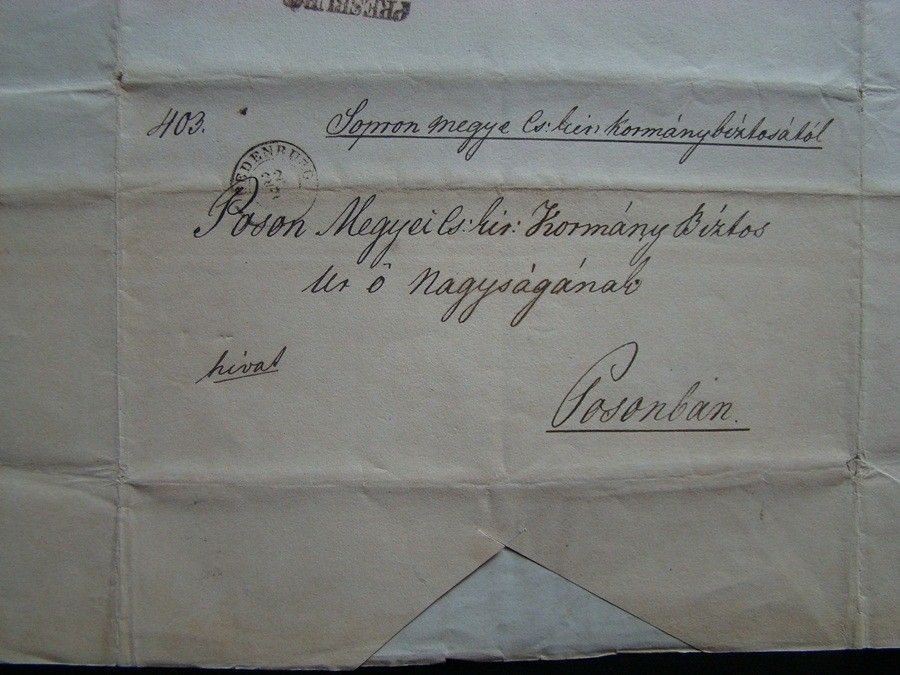 PRESBURG
403. Sopron megye Cs: kir: kormánybíztosától
OEDENBURG
22
Poson Megyei Cs: kir: Kormány Bíztos
Ur ő Nagyságának
hivat
Posonban.